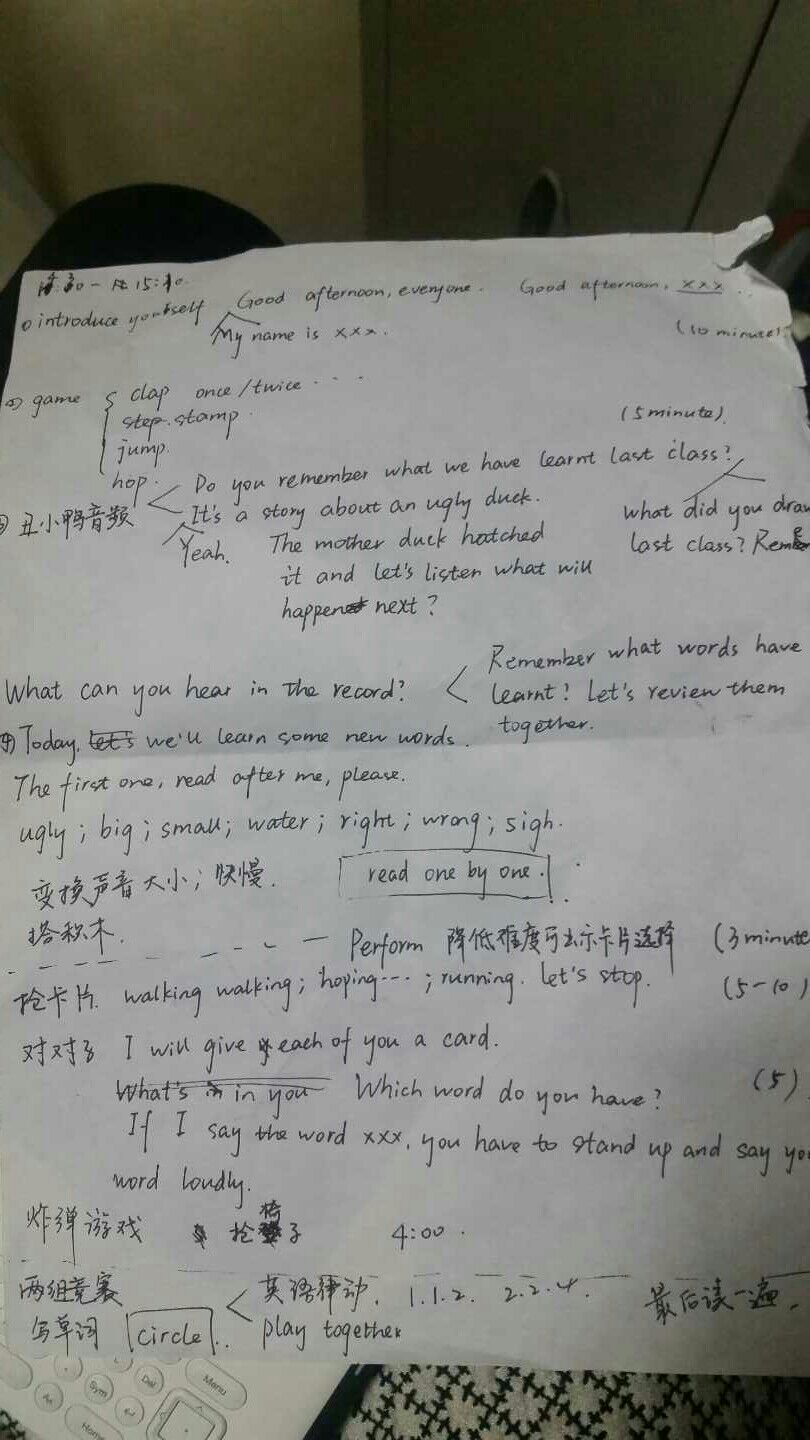 15:10.
introduce yourself Good afternoon, everyone. Good afternoon, xxx ..
My name is xxx. (10 minute)
② game clap once/twice ....
step. stamp. (5 minute).
jump.
hop. Do you remember what we have learnt last class?
③ 丑小鸭音频 It's a story about an ugly duck. What did you draw
Yeah. The mother duck hatched last class?
it and let's listen what will
happen next?
Remember what words have
What can you hear in the record? learnt! Let's review them
together.
④ Today, we'll learn some new words.
The first one, read after me, please.
ugly; big; small; water; right; wrong; sigh.
变换声音大小; 快慢. read one by one.
搭积木.
Perform 降低难度可出示卡片选择 (3 minute
抢卡片. walking walking; hoping...; running. let's stop. (5-10)
对对子 I will give each of you a card.
What's in you Which word do you have? (5)
If I say the word xxx, you have to stand up and say you
word loudly.
炸弹游戏 抢椅子 4:00.
两组竞赛 英语律动. 1.1.2. 2.2.4. 最后读一遍.
写单词 circle.. play together
Menu
Del
Sym
Alt
Home